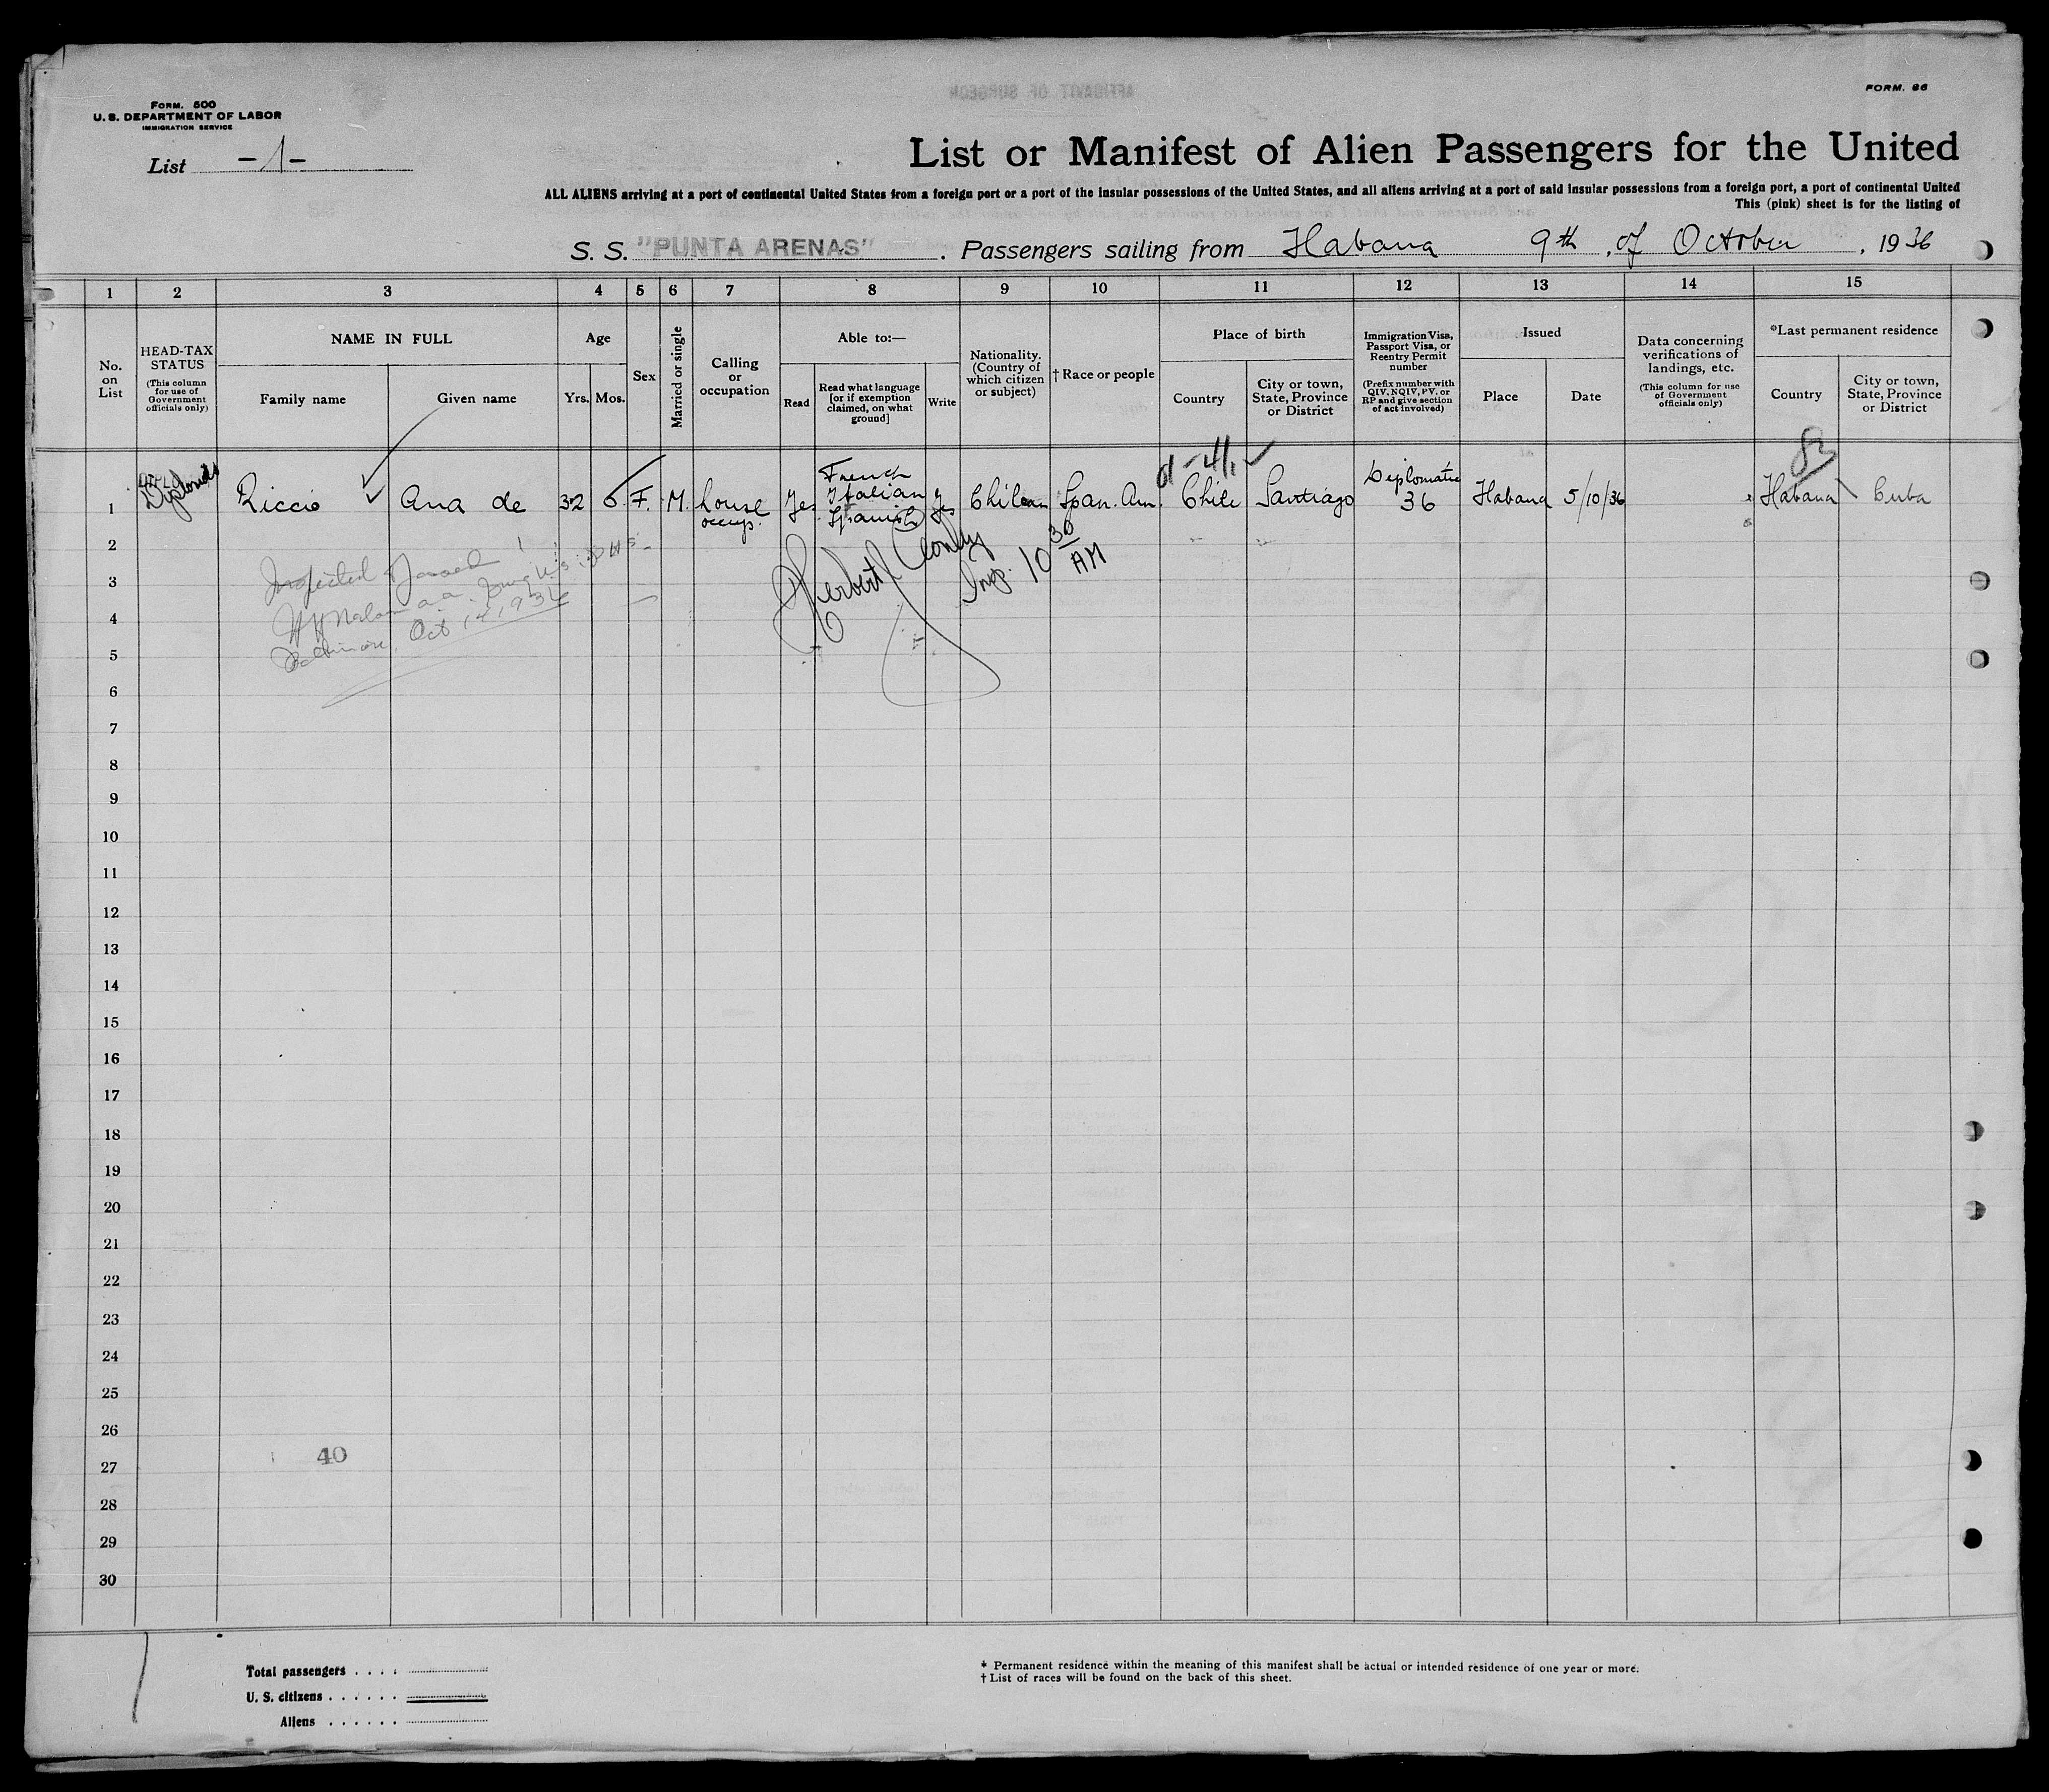 AFFIDAVIT OF SURGEON
FORM. 500
U. S. DEPARTMENT OF LABOR
IMMIGRATION SERVICE
FORM. 86
List -1-
List or Manifest of Alien Passengers for the United
ALL ALIENS arriving at a port of continental United States from a foreign port or a port of the insular possessions of the United States, and all aliens arriving at a port of said insular possessions from a foreign port, a port of continental United
This (pink) sheet is for the listing of
S. S. "PUNTA ARENAS" . Passengers sailing from Habana 9th , of October , 1936
1 2 3 4 5 6 7 8 9 10 11 12 13 14 15
No. on List
HEAD-TAX STATUS
(This column for use of Government officials only)
NAME IN FULL
Family name
Given name
Age
Yrs. Mos.
Sex
Married or single
Calling or occupation
Able to:—
Read
Read what language [or if exemption claimed, on what ground]
Write
Nationality. (Country of which citizen or subject)
† Race or people
Place of birth
Country
City or town, State, Province or District
Immigration Visa, Passport Visa, or Reentry Permit number
(Prefix number with QIV, NQIV, PV. or RP and give section of act involved)
Issued
Place
Date
Data concerning verifications of landings, etc.
(This column for use of Government officials only)
*Last permanent residence
Country
City or town, State, Province or District
1 Diplomatic Riccio Ana de 32 6 F. M. house occup. Yes French Italian Spanish Yes Chilean Span. Am. Chile Santiago Diplomatic 36 Habana 5/10/36 Habana Cuba
82
Herbert
Insp. 10 30 AM
Inspected
Baltimore, Oct 14, 1936
2
3
4
5
6
7
8
9
10
11
12
13
14
15
16
17
18
19
20
21
22
23
24
25
26
40
27
28
29
30
Total passengers . . . .
U. S. citizens . . . . . .
Aliens . . . . . .
* Permanent residence within the meaning of this manifest shall be actual or intended residence of one year or more.
† List of races will be found on the back of this sheet.